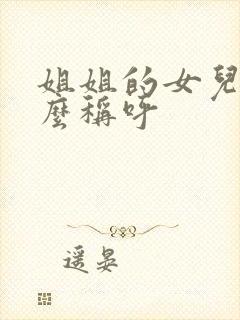 姐姐的女兒
麼稱呼
遥晏